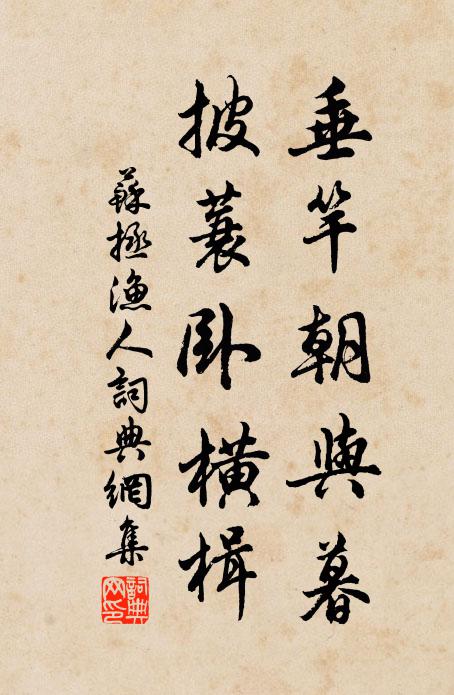 垂竿朝與暮
披蓑臥橫楫
蘇拯漁人詞典網集
詞典网印